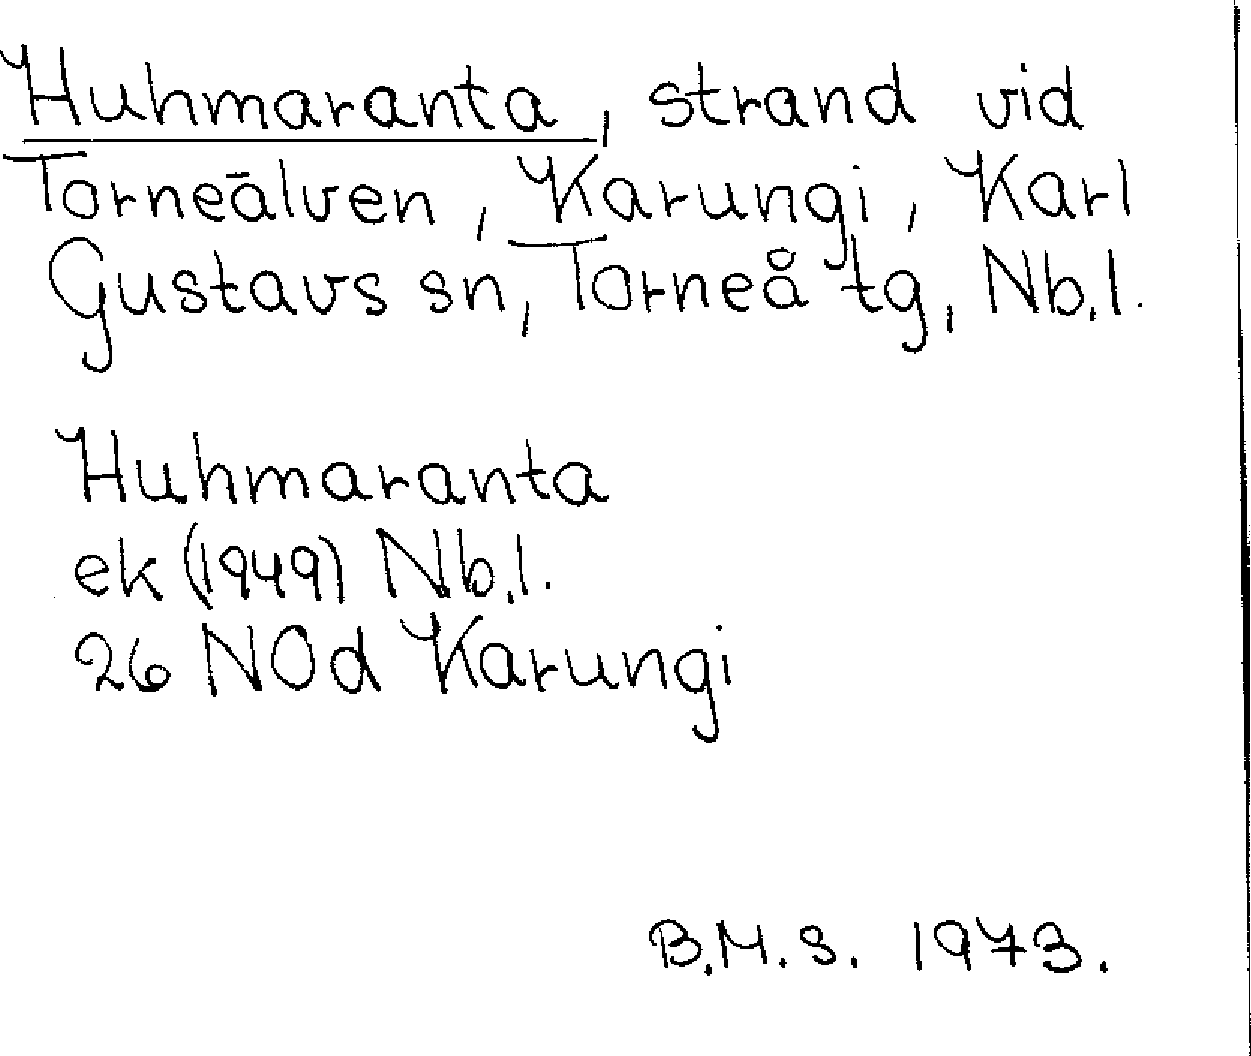 Huhmaranta, strand vid
Torneälven, Karungi, Karl
Gustavs sn, Torneå tg, Nb.l.
Huhmaranta
ek (1949) Nb.l.
26 NOd Karungi
B.M.S. 1973.